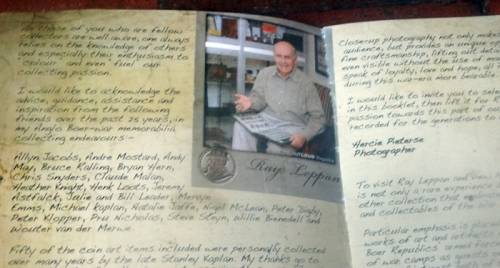 For those of you who are fellow
collectors are well aware, one always
relies on the knowledge of others
and especially their enthusiasm to
colour and even fuel our
collecting passion.
I would like to acknowledge the
advice, guidance, assistance and
inspiration from the following
friends over the past 25 years, in
my Anglo Boer-war memorabilia
collecting endeavours:-
Allyn Jacobs, Andre Mostard, Andy
May, Bruce Kidling, Bryan Hern,
Chris Snyders, Claude Malan,
Heather Knight, Henk Loots, Jeremy
Astfalck, Jalie and Bill Leader, Mervyn
Emms, Michael Kaplan, Natalie Jaffe, Nigel McLean, Peter Digby,
Peter Klopper, Pru Nicholas, Steve Steyn, Willie Benedell and
Wouter van der Merwe.
Fifty of the coin art items included were personally collected
over many years by the late Stanley Kaplan. My thanks go to
Ray Leppan
Close-up photography not only makes
audience, but provides an unique vi
fine craftsmanship, lifting out deta
even visible without the use of mag
speak of loyalty, love and hope, all t
during this war era more bearable.
I would like to invite you to select
in this booklet, then let it fire y
passion towards this part of our
recorded for the generations to
Hercie Pieterse
Photographer
To visit Ray Leppan and view
is not only a rare experience
other collection that
and collectables of the
Particular emphasis is place
works of art and artefacts
Boer Republics' armed forces
of war camps as guests